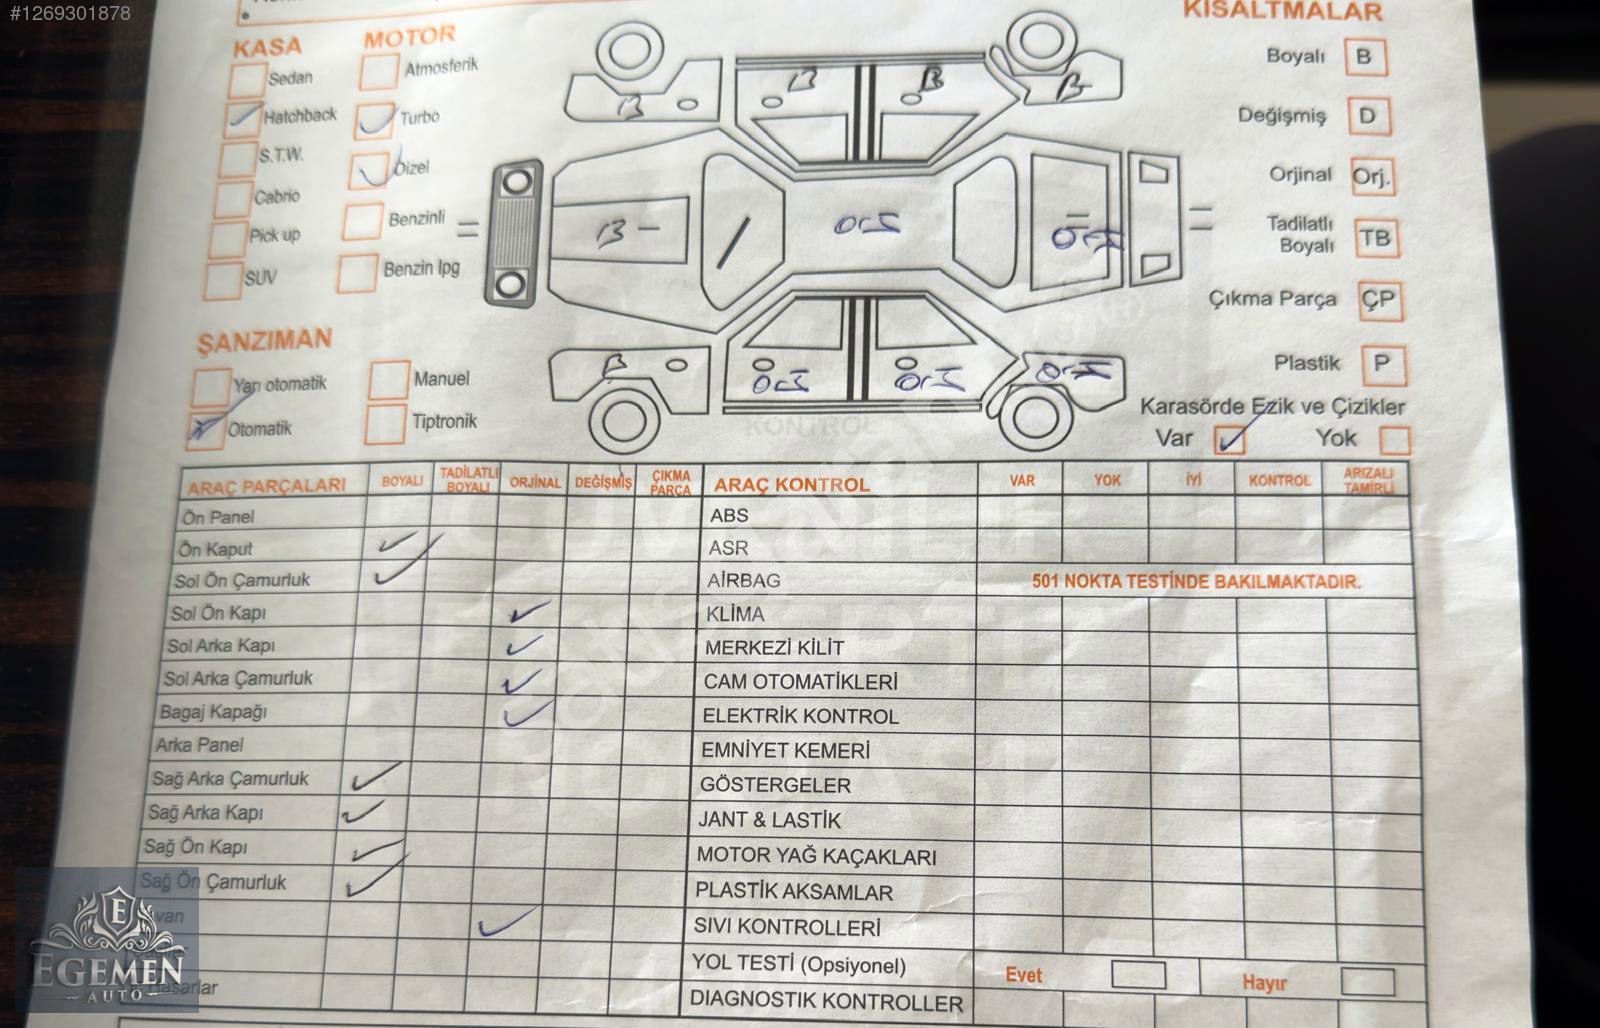 #1269301878
KASA
MOTOR
Sedan
Hatchback
S.T.W.
Cabrio
Pick up
SUV
Atmosferik
Turbo
Dizel
Benzinli
Benzin lpg
ŞANZIMAN
Yarı otomatik
Otomatik
Manuel
Tiptronik
B
B
B
B
B -
Orj
Orj
B
Orj
Orj
Orj
KISALTMALAR
Boyalı B
Değişmiş D
Orjinal Orj.
Tadilatlı
Boyalı TB
Çıkma Parça ÇP
Plastik P
Karasörde Ezik ve Çizikler
Var
Yok
ARAÇ PARÇALARI BOYALI TADİLATLI BOYALI ORJİNAL DEĞİŞMİŞ ÇIKMA PARÇA
Ön Panel
Ön Kaput
Sol Ön Çamurluk
Sol Ön Kapı
Sol Arka Kapı
Sol Arka Çamurluk
Bagaj Kapağı
Arka Panel
Sağ Arka Çamurluk
Sağ Arka Kapı
Sağ Ön Kapı
Sağ Ön Çamurluk
ARAÇ KONTROL VAR YOK İYİ KONTROL ARIZALI TAMİRLİ
ABS
ASR
AİRBAG 501 NOKTA TESTİNDE BAKILMAKTADIR.
KLİMA
MERKEZİ KİLİT
CAM OTOMATİKLERİ
ELEKTRİK KONTROL
EMNİYET KEMERİ
GÖSTERGELER
JANT & LASTİK
MOTOR YAĞ KAÇAKLARI
PLASTİK AKSAMLAR
SIVI KONTROLLERİ
YOL TESTİ (Opsiyonel) Evet Hayır
DIAGNOSTIK KONTROLLER
E
EGEMEN
AUTO